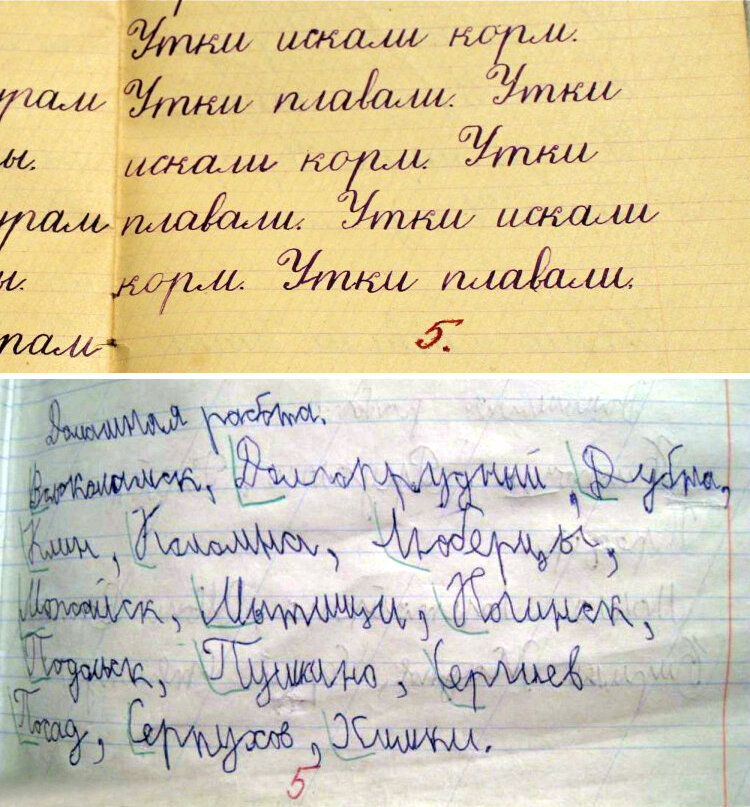 Утки искали корм.
урам Утки плавали. Утки
ы. искали корм. Утки
урам плавали. Утки искали
ы. корм. Утки плавали.
рам
5.
Домашняя работа.
Волоколамск, Долгопрудный, Дубна,
Клин, Коломна, Люберцы,
Можайск, Мытищи, Ногинск,
Подольск, Пушкино, Сергиев
Посад, Серпухов, Химки.
5